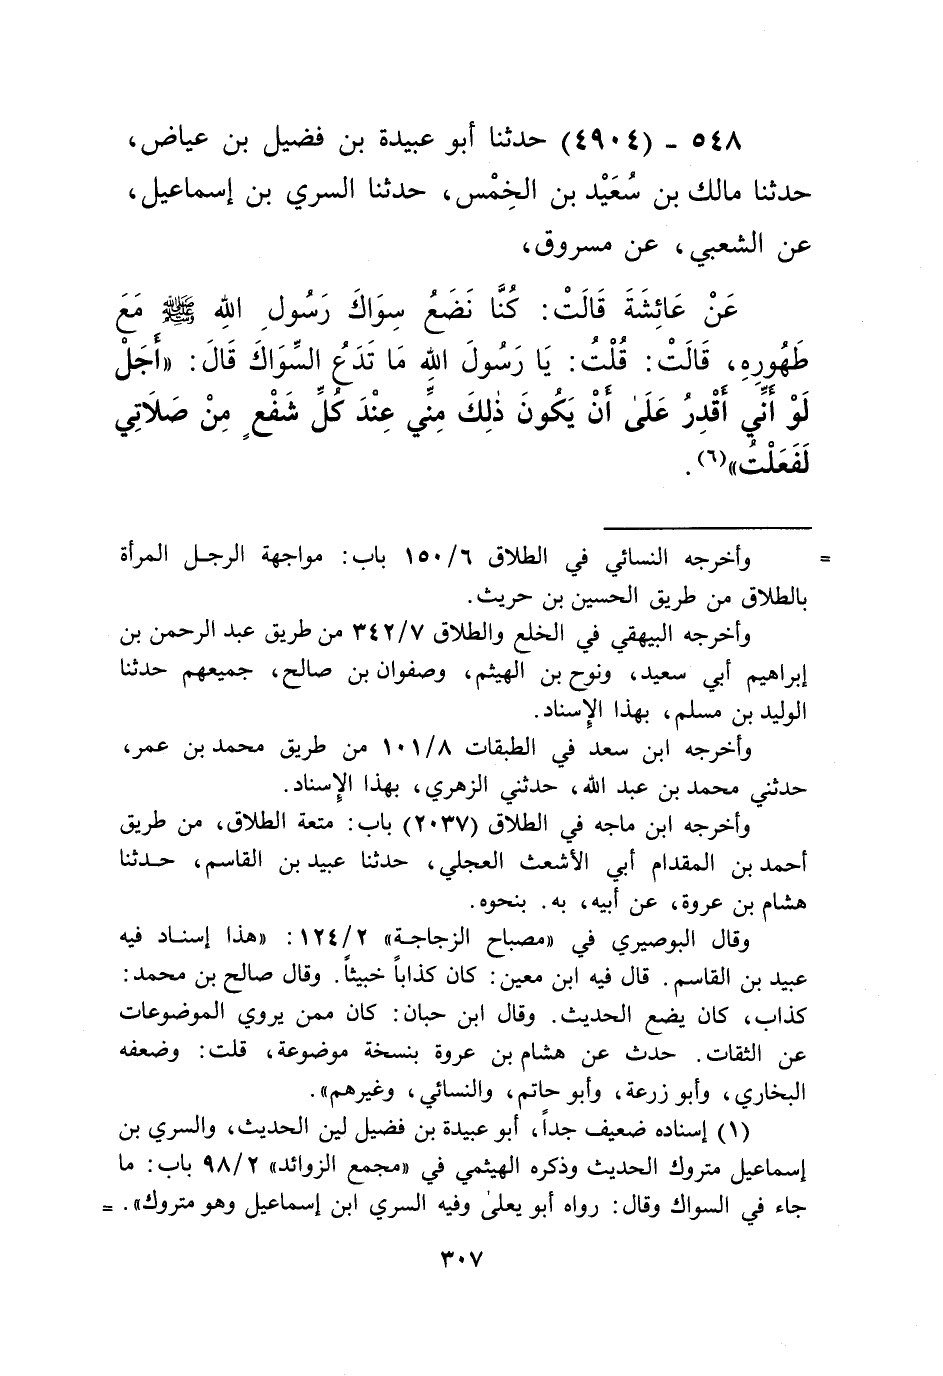 ٥٤٨ - (٤٩٠٤) حدثنا أبو عبيدة بن فضيل بن عياض،
حدثنا مالك بن سُعَيْد بن الخِمْس، حدثنا السري بن إسماعيل،
عن الشعبي، عن مسروق،
عَنْ عَائِشَةَ قَالَتْ: كُنَّا نَضَعُ سِوَاكَ رَسُولِ اللهِ ﷺ مَعَ
طَهُورِهِ، قَالَتْ: قُلْتُ: يَا رَسُولَ اللهِ مَا تَدَعُ السِّوَاكَ قَالَ: «أَجَلْ
لَوْ أَنِّي أَقْدِرُ عَلَىٰ أَنْ يَكُونَ ذٰلِكَ مِنِّي عِنْدَ كُلِّ شَفْعٍ مِنْ صَلَاتِي
لَفَعَلْتُ»(٦).
= وأخرجه النسائي في الطلاق ١٥٠/٦ باب: مواجهة الرجل المرأة
بالطلاق من طريق الحسين بن حريث.
وأخرجه البيهقي في الخلع والطلاق ٣٤٢/٧ من طريق عبد الرحمن بن
إبراهيم أبي سعيد، ونوح بن الهيثم، وصفوان بن صالح، جميعهم حدثنا
الوليد بن مسلم، بهذا الإسناد.
وأخرجه ابن سعد في الطبقات ١٠١/٨ من طريق محمد بن عمر،
حدثني محمد بن عبد الله، حدثني الزهري، بهذا الإسناد.
وأخرجه ابن ماجه في الطلاق (٢٠٣٧) باب: متعة الطلاق، من طريق
أحمد بن المقدام أبي الأشعث العجلي، حدثنا عبيد بن القاسم، حدثنا
هشام بن عروة، عن أبيه، به. بنحوه.
وقال البوصيري في «مصباح الزجاجة» ١٢٤/٢: «هذا إسناد فيه
عبيد بن القاسم. قال فيه ابن معين: كان كذاباً خبيثاً. وقال صالح بن محمد:
كذاب، كان يضع الحديث. وقال ابن حبان: كان ممن يروي الموضوعات
عن الثقات. حدث عن هشام بن عروة بنسخة موضوعة، قلت: وضعفه
البخاري، وأبو زرعة، وأبو حاتم، والنسائي، وغيرهم».
(١) إسناده ضعيف جداً، أبو عبيدة بن فضيل لين الحديث، والسري بن
إسماعيل متروك الحديث وذكره الهيثمي في «مجمع الزوائد» ٩٨/٢ باب: ما
جاء في السواك وقال: رواه أبو يعلىٰ وفيه السري ابن إسماعيل وهو متروك». =
٣٠٧